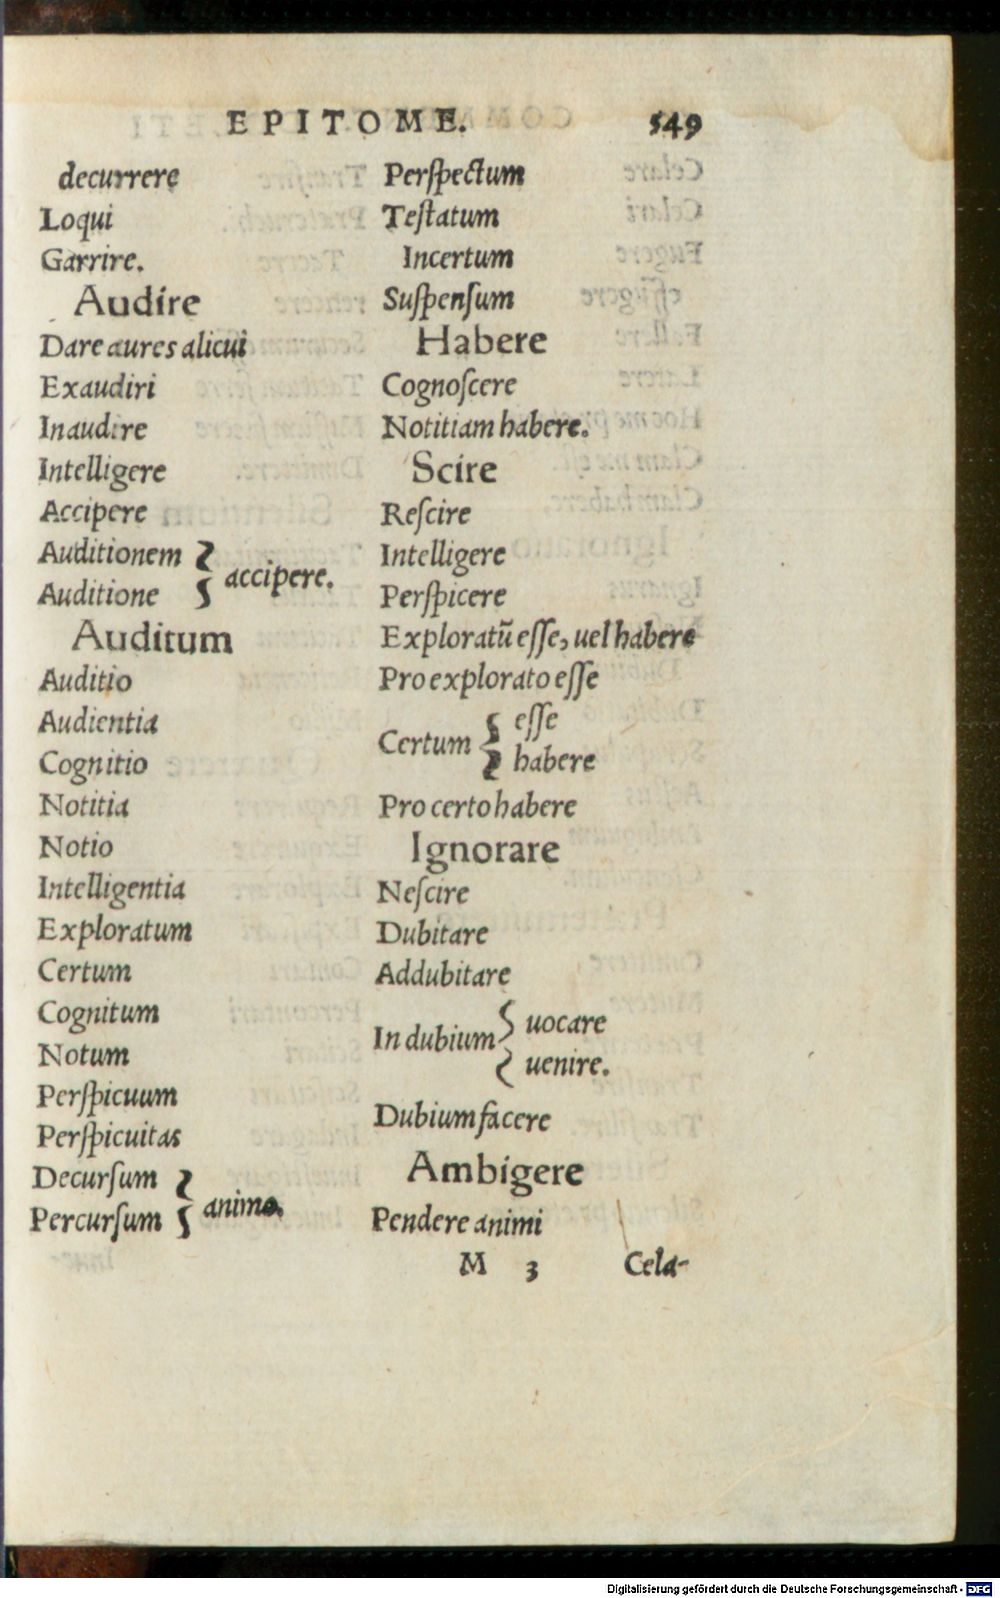 EPITOME. 549
decurrere
Loqui
Garrire.
Audire
Dare aures alicui
Exaudiri
Inaudire
Intelligere
Accipere
Auditionem
Auditione
accipere.
Auditum
Auditio
Audientia
Cognitio
Notitia
Notio
Intelligentia
Exploratum
Certum
Cognitum
Notum
Perſpicuum
Perſpicuitas
Decurſum
Percurſum
animo.
Perſpectum
Teſtatum
Incertum
Suſpenſum
Habere
Cognoſcere
Notitiam habere.
Scire
Reſcire
Intelligere
Perſpicere
Exploratũ eſſe, uel habere
Pro explorato eſſe
Certum { eſſe
habere
Pro certo habere
Ignorare
Neſcire
Dubitare
Addubitare
In dubium { uocare
uenire.
Dubium facere
Ambigere
Pendere animi
M 3 Cela-
Digitalisierung gefördert durch die Deutsche Forschungsgemeinschaft - DFG